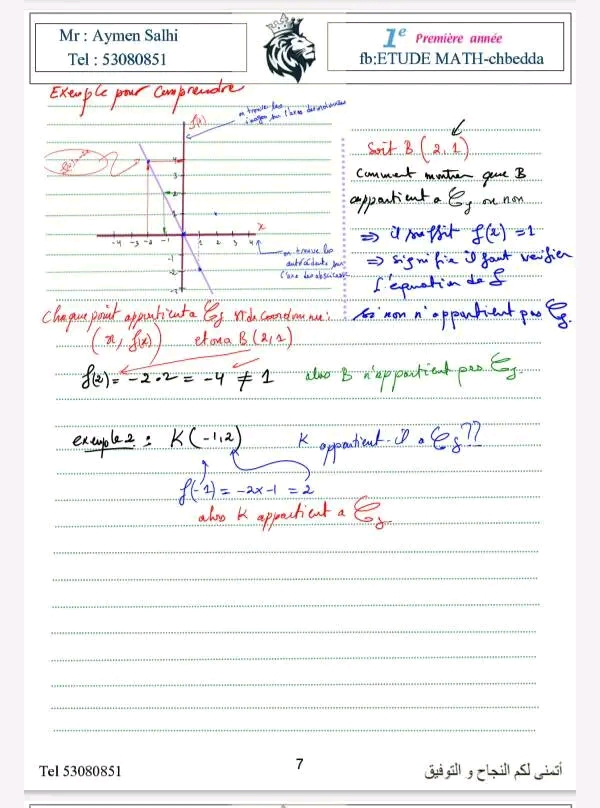 Mr : Aymen Salhi
Tel : 53080851
1e Première année
fb:ETUDE MATH-chbedda
Exemple pour comprendre
f(x)
on trouve les
images sur l'axes des ordonnées
4
3
2
1
-4 -3 -2 -1 1 2 3 4
x
-1
-2
-3
on trouve les
antécédents sur
l'axe des abscisses
Soit B (2,1)
Comment montrer que B
appartient a Cf ou non
⇒ il suffit f(2) = 1
⇒ signifie il faut verifier
l'équation de f
si non n'appartient pas Cf.
Chaque point appartient a Cf de coordonnée:
(x, f(x)) et on a B(2,1)
f(2) = -2×2 = -4 ≠ 1 alors B n'appartient pas Cf.
exemple 2 : K(-1,2) K appartient-il a Cf ??
f(-1) = -2x-1 = 2
alors K appartient a Cf.
Tel 53080851
7
أتمنى لكم النجاح و التوفيق